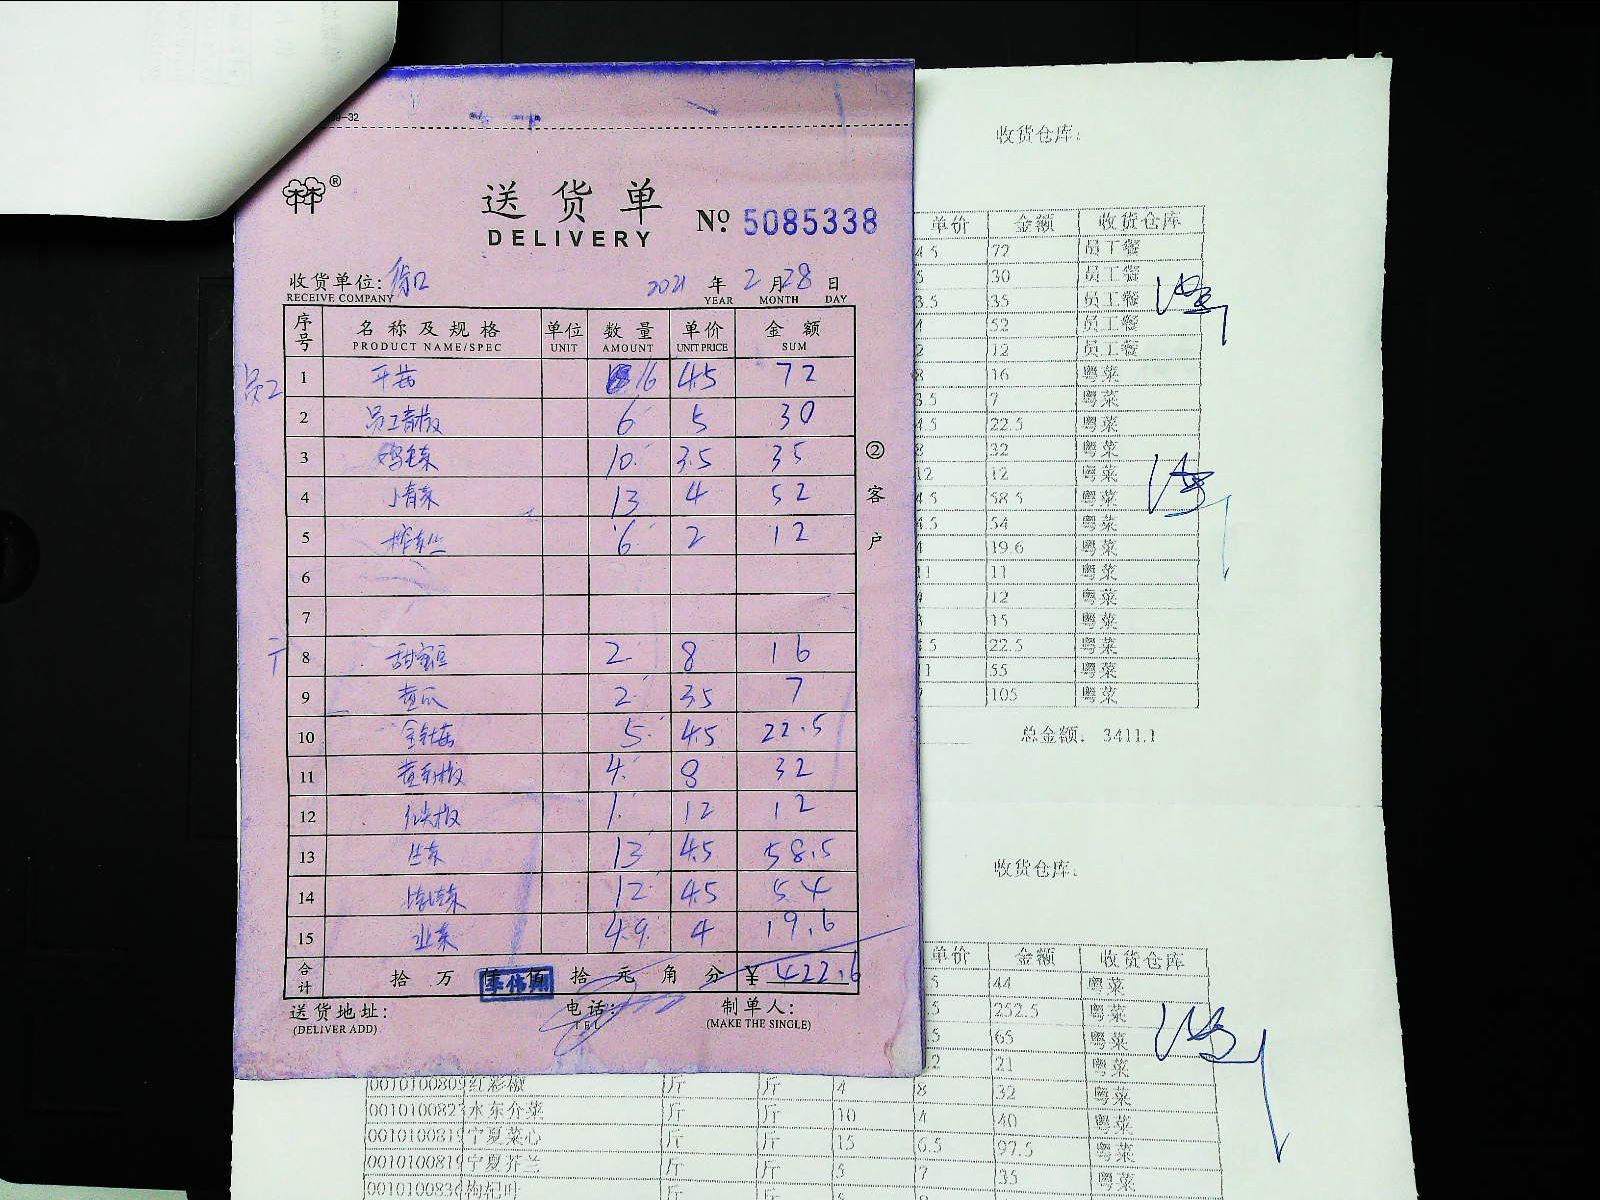 9-32
送货单
DELIVERY
№ 5085338
收货单位:
RECEIVE COMPANY
2021 年 2 月 28 日
YEAR MONTH DAY
序号 名称及规格 单位 数量 单价 金额
PRODUCT NAME/SPEC UNIT AMOUNT UNIT PRICE SUM
员工
1 平菇 16 4.5 72
2 员工青椒 6 5 30
3 鸡毛菜 10 3.5 35
4 小青菜 13 4 52
5 榨菜丝 6 2 12
6
7
8 甜蜜豆 2 8 16
9 黄瓜 2 3.5 7
10 金针菇 5 4.5 22.5
11 黄彩椒 4 8 32
12 12 1 12
13 生菜 13 4.5 58.5
14 12 4.5 54
15 4.9 4 19.6
合计 拾 万 仟 佰 拾 元 角 分 ¥ 422.6
送货地址: 电话: 制单人:
(DELIVER ADD) TEL (MAKE THE SINGLE)
②客户
收货仓库:
单价 金额 收货仓库
4.5 72 员工餐
5 30 员工餐
3.5 35 员工餐
4 52 员工餐
2 12 员工餐
8 16 粤菜
3.5 7 粤菜
4.5 22.5 粤菜
8 32 粤菜
12 12 粤菜
4.5 58.5 粤菜
4.5 54 粤菜
4 19.6 粤菜
11 11 粤菜
4 12 粤菜
15 粤菜
.5 22.5 粤菜
55 粤菜
105 粤菜
总金额: 3411.1
收货仓库:
单价 金额 收货仓库
5 44 粤菜
.5 252.5 粤菜
.5 65 粤菜
2 21 粤菜
0010100809 红彩椒 斤 斤 4 8 32 粤菜
001010082 水东介菜 斤 斤 10 4 40 粤菜
001010081 宁夏菜心 斤 斤 15 6.5 97.5 粤菜
001010081 宁夏芥兰 斤 斤 5 7 35 粤菜
001010083 枸杞叶 斤 斤